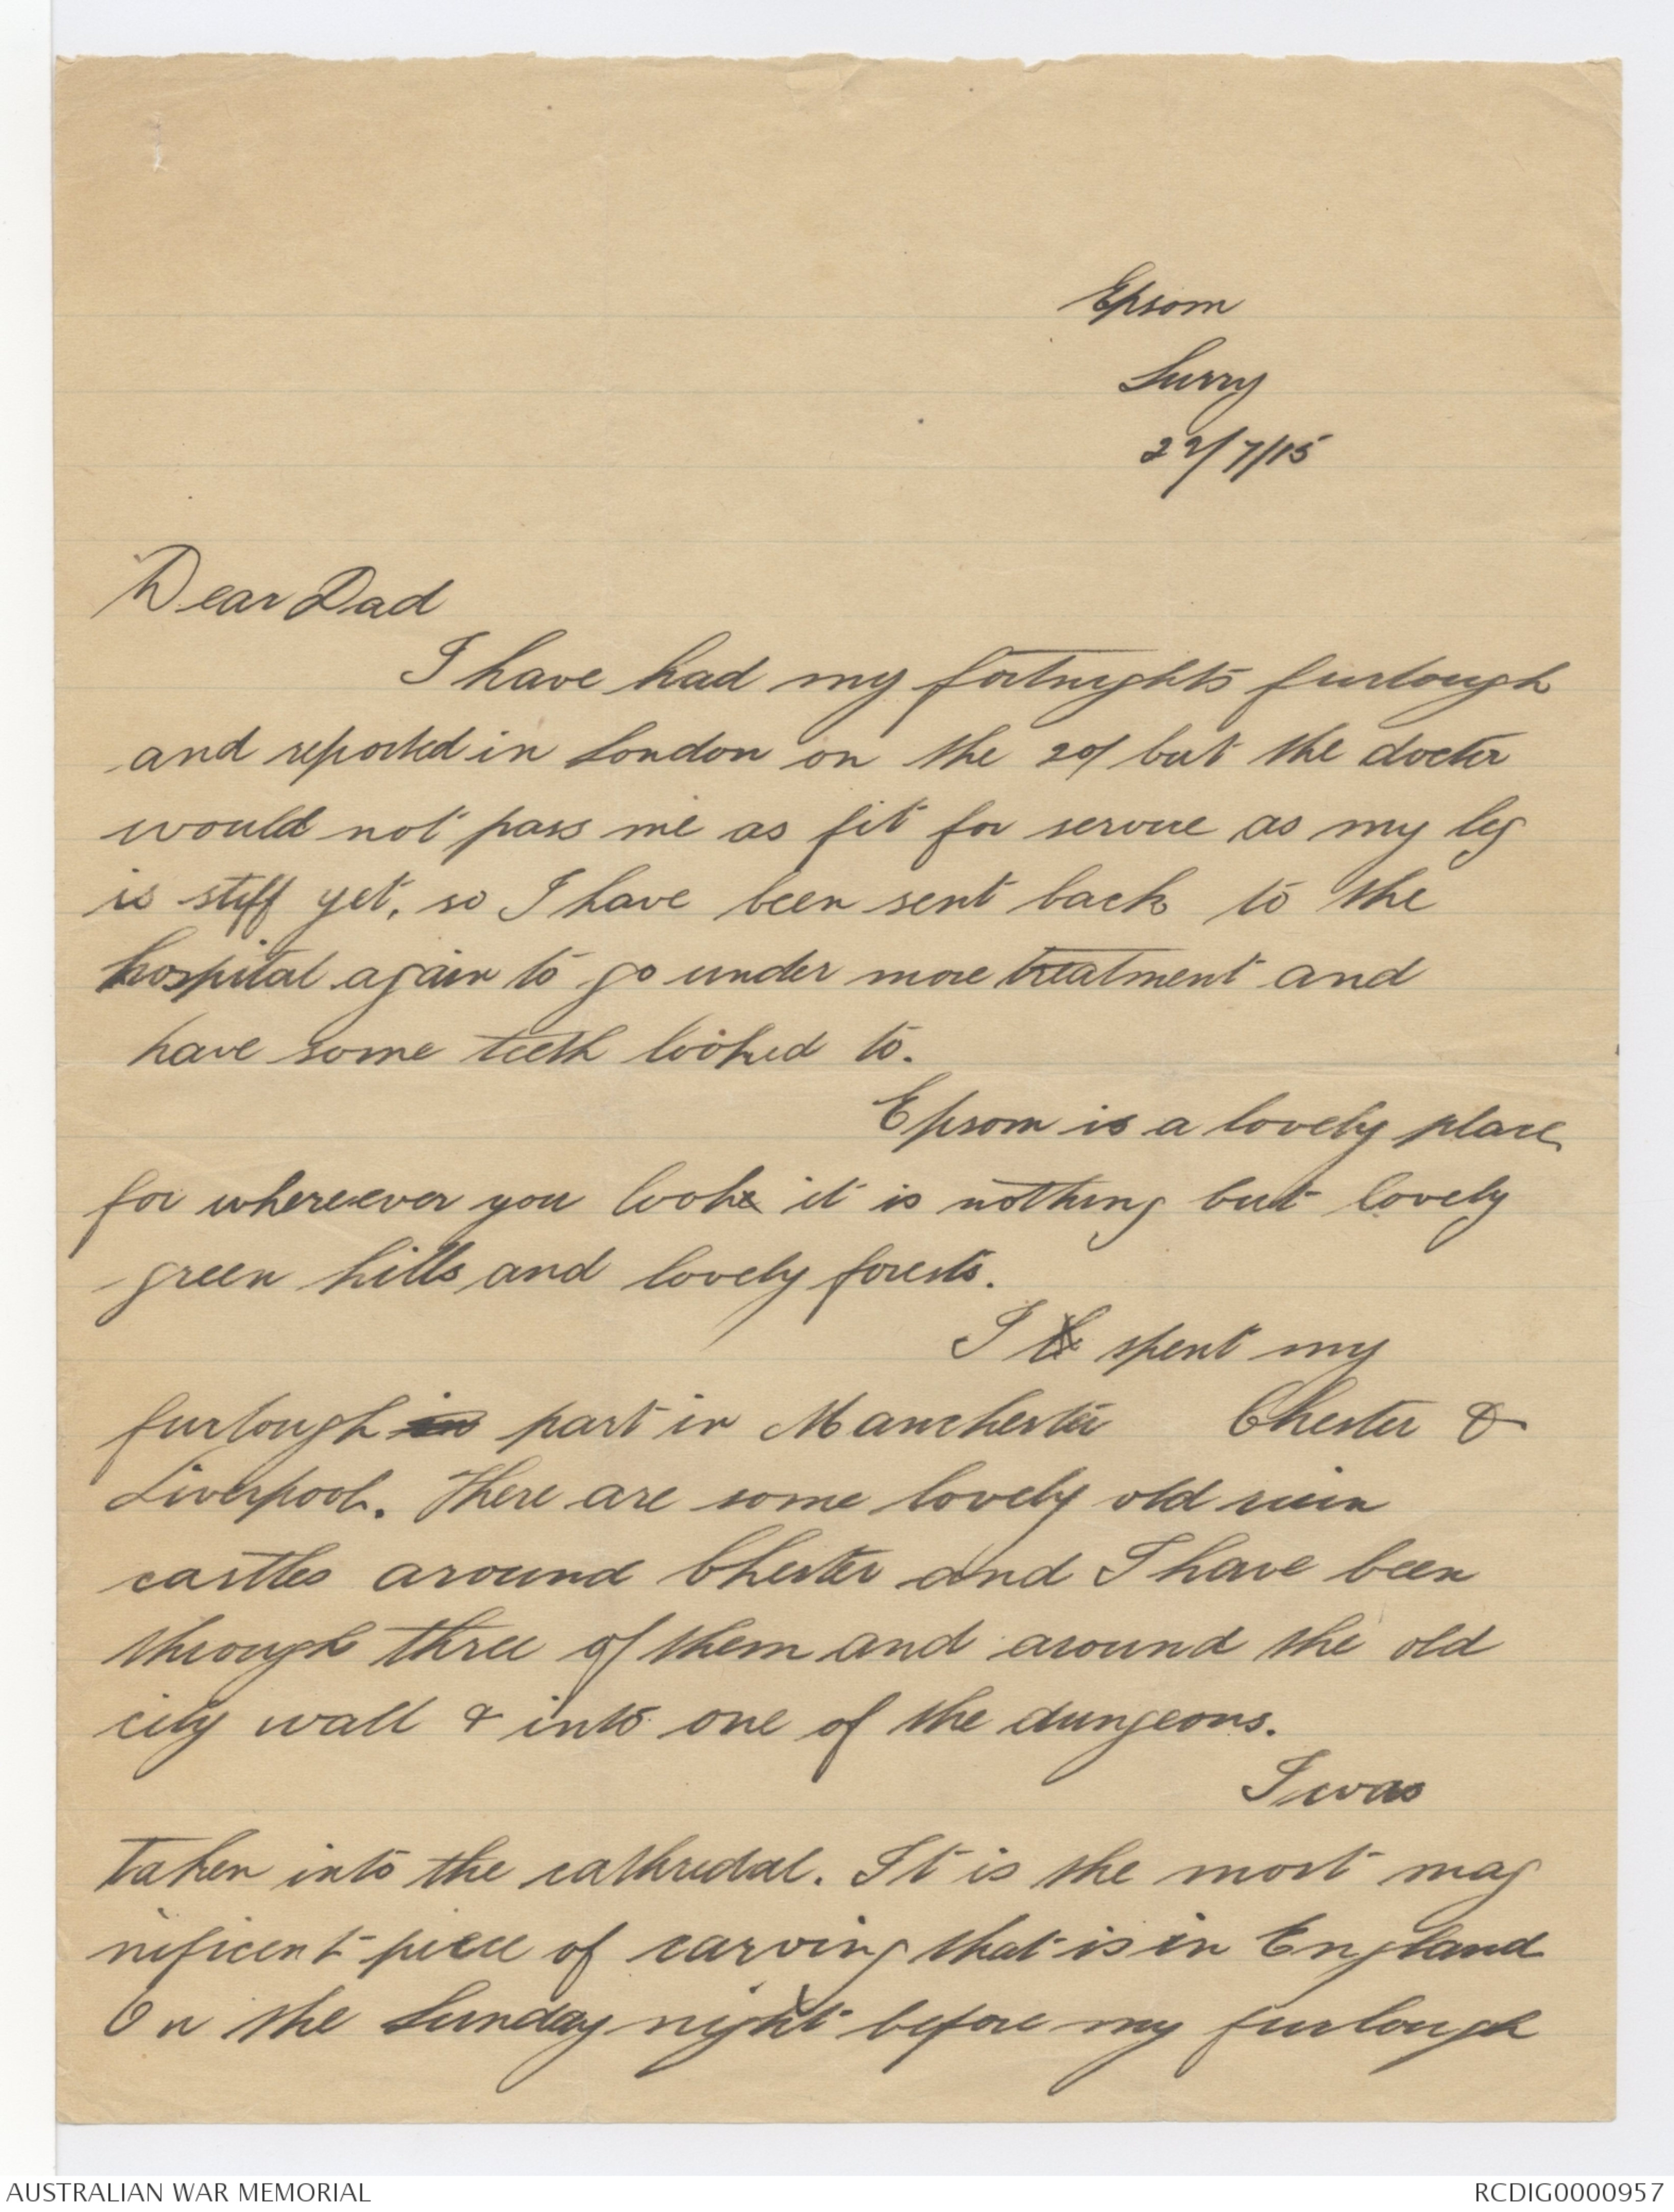 Epsom
Surry
22/7/15
Dear Dad
I have had my fortnights furlough
and reported in London on the 20/ but the docter
would not pass me as fit for service as my leg
is stiff yet, so I have been sent back to the
hospital again to go under more treatment and
have some teeth looked to.
Epsom is a lovely place
for whereever you look it is nothing but lovely
green hills and lovely forests.
I spent my
furlough part in Manchester Chester &
Liverpool. There are some lovely old ruin
castles around Chester and I have been
through three of them and around the old
city wall & into one of the dungeons.
I was
taken into the cathredal. It is the most mag
nificent piece of carving that is in England
On the Sunday night before my furlough
AUSTRALIAN WAR MEMORIAL
RCDIG0000957